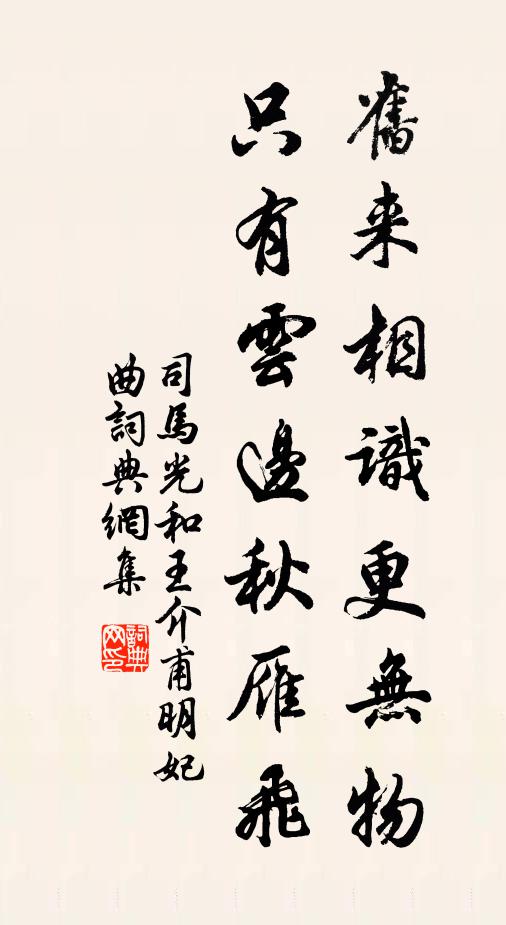 舊来相識更無物
只有雲邊秋雁飛
司馬光和王介甫明妃
曲詞典網集
詞典网印